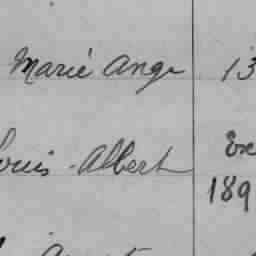 Marie Ange 13
Louis Albert Ex
189